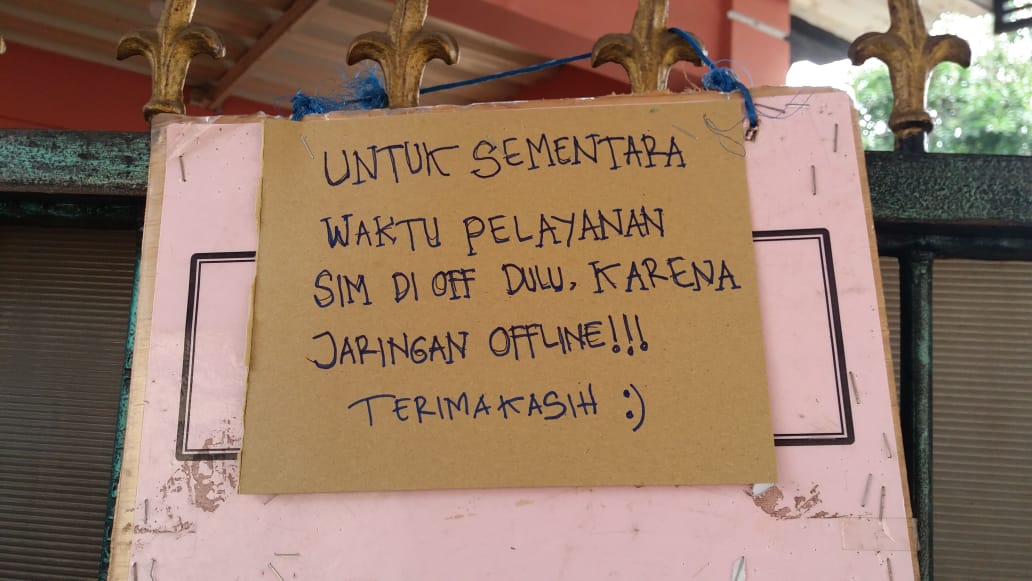 UNTUK SEMENTARA
WAKTU PELAYANAN
SIM DI OFF DULU, KARENA
JARINGAN OFFLINE!!!
TERIMAKASIH :)